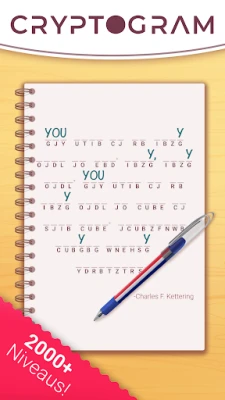 CRYPTOGRAM
YOU Y
GJY UTIB CJ RB IBZG
Y, Y
OJDL JO EBD IBZG IBZG
YOU
OJDL GJY UTIB CJ RB
Y
IBZG OJDL JO CUBE
Y
SJIB CUBE JCUBZFNWB
CUBGBG WNEHSG
YDRBTZTRS
-Charles F. Kettering
2000+
Niveaus!